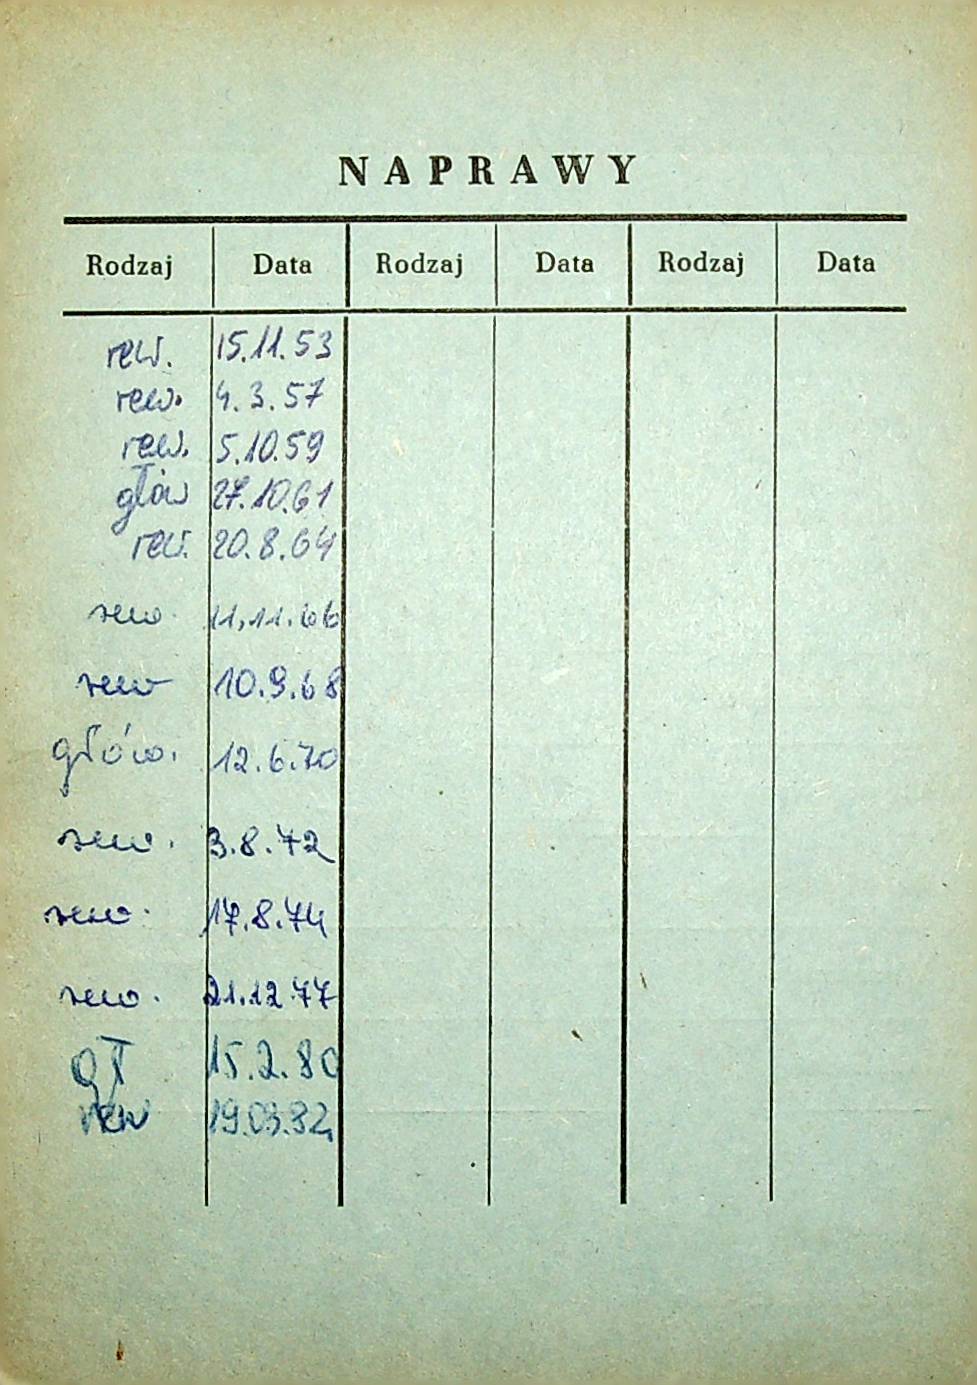 NAPRAWY
Rodzaj Data Rodzaj Data Rodzaj Data
rew. 15.11.53
rew. 4.3.57
rew. 5.10.59
głów 27.10.61
rew. 20.8.64
rew. 11,11.66
rew 10.9.68
głów. 12.6.70
rew. 3.8.72
rew. 17.8.74
rew. 21.12.77
gł 15.2.80
rew 19.03.82